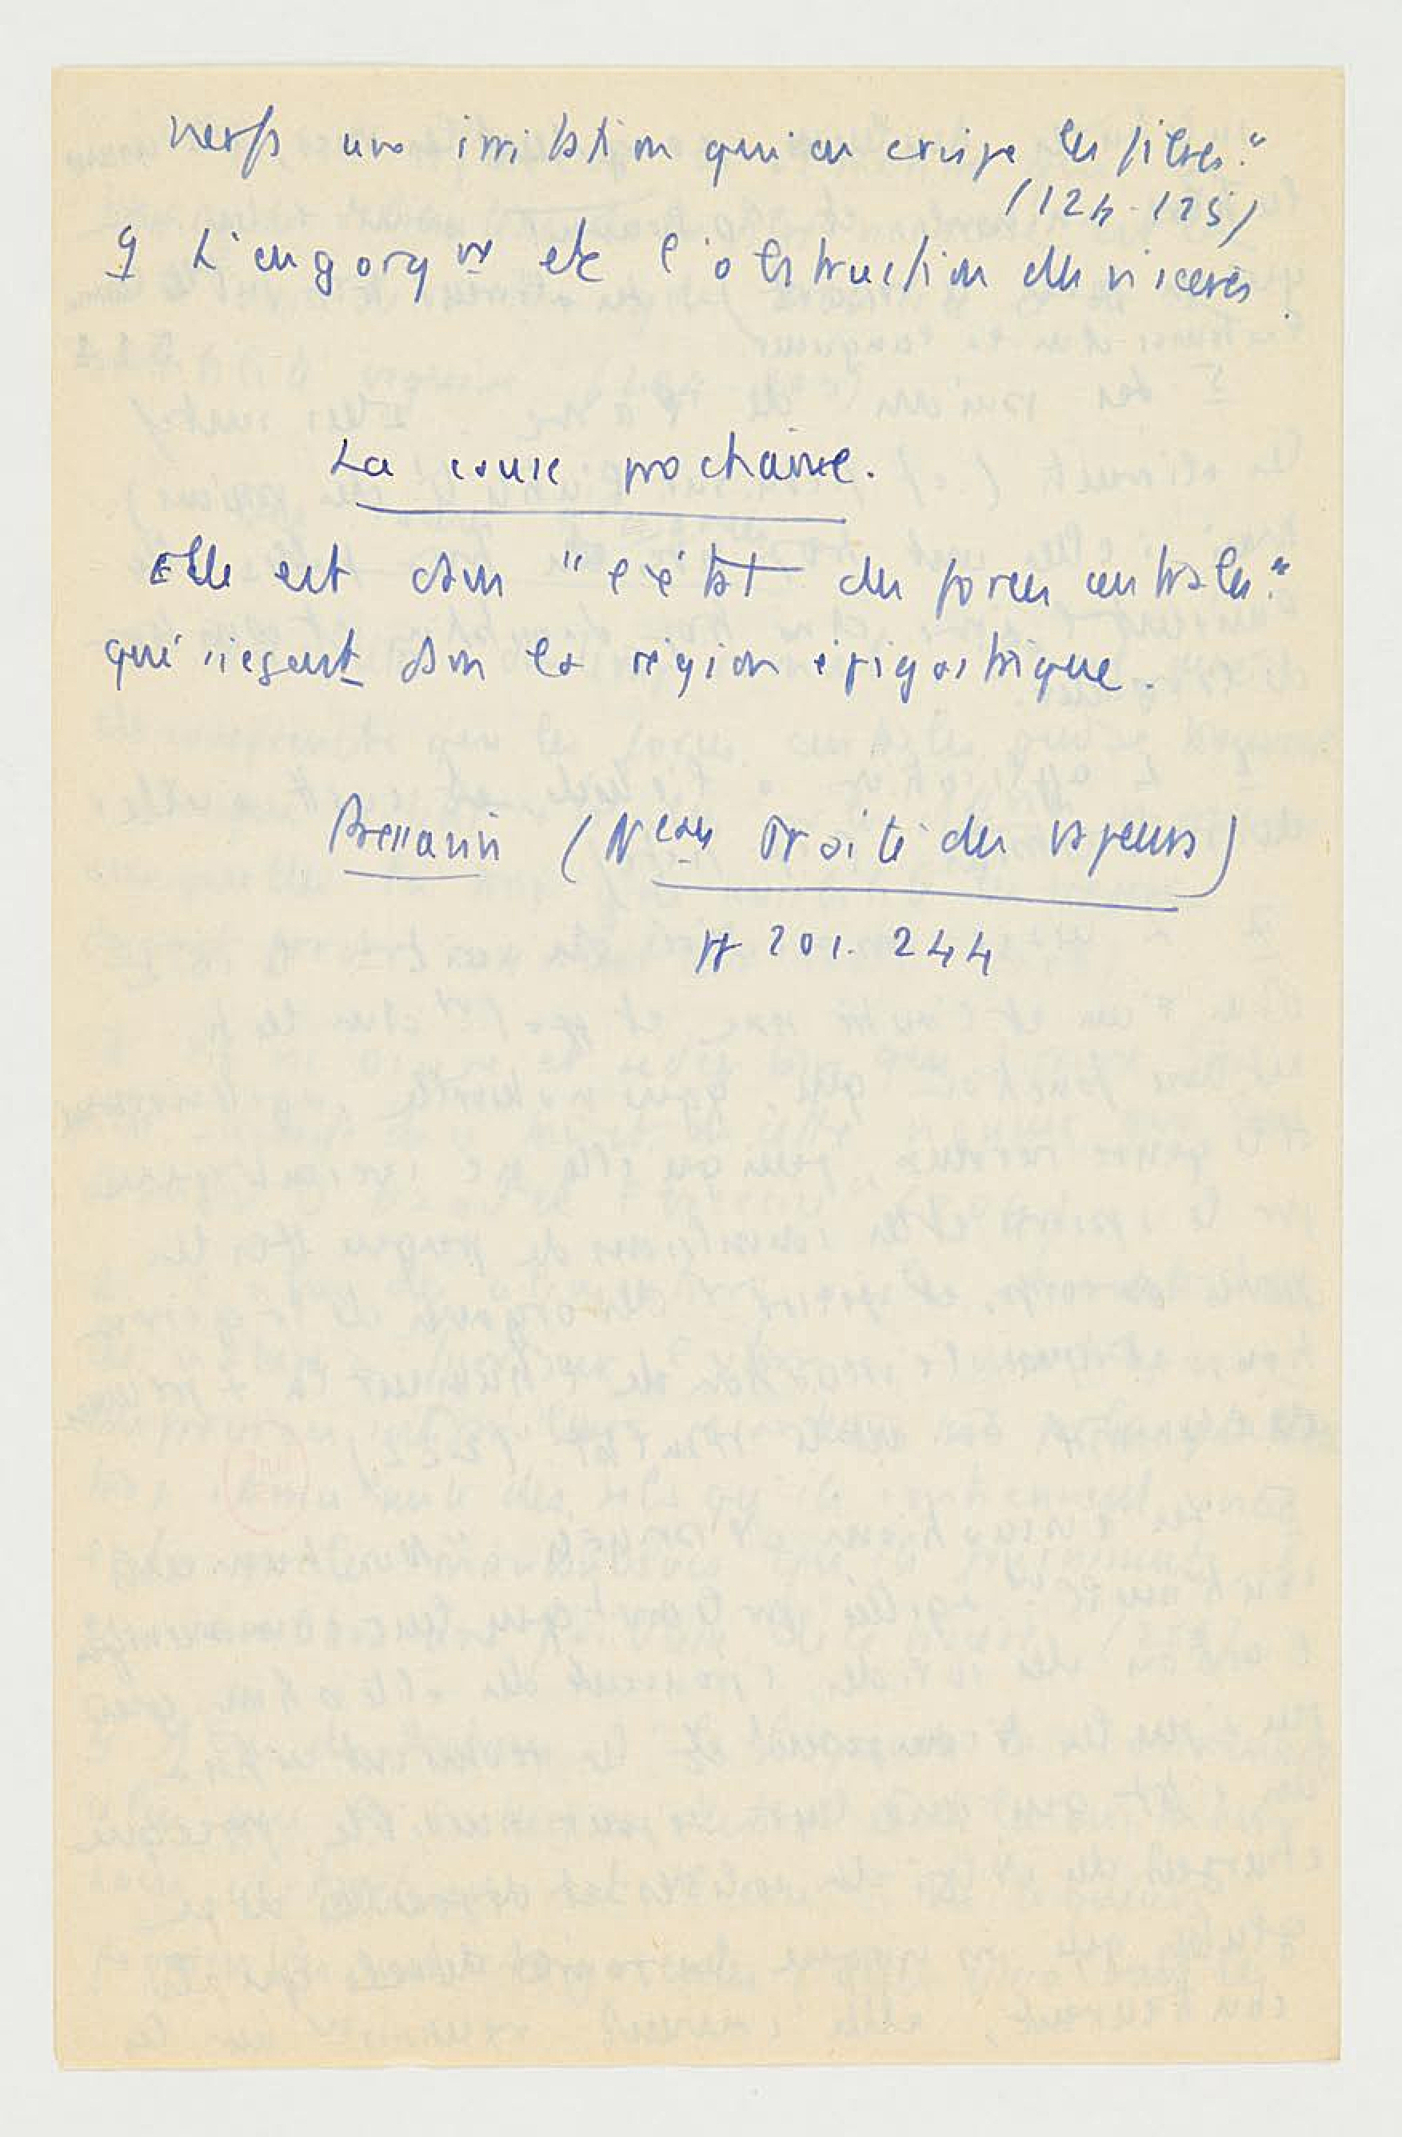 nerfs une irritation qui en crispe les fibres."
(124-125)
9 L'engorgmt et l'obstruction des visceres.
La cause prochaine.
Elle est dans "l'état des forces centrales"
qui siegent dans la région épigastrique.
Bressarin (Neau Traité des vapeurs)
pp 201. 244